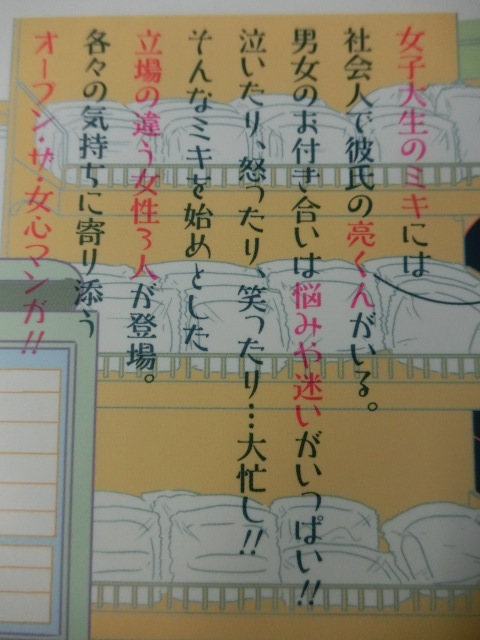 女子大生のミキには
社会人で彼氏の亮くんがいる。
男女のお付き合いは悩みや迷いがいっぱい!!
泣いたり、怒ったり、笑ったり…大忙し!!
そんなミキを始めとした
立場の違う女性3人が登場。
各々の気持ちに寄り添う
オープン・ザ・女心マンガ!!